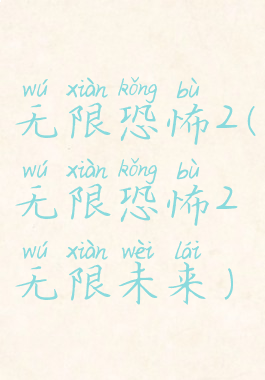 wú xiàn kǒng bù
无限恐怖2(
wú xiàn kǒng bù
无限恐怖2
wú xiàn wèi lái
无限未来)